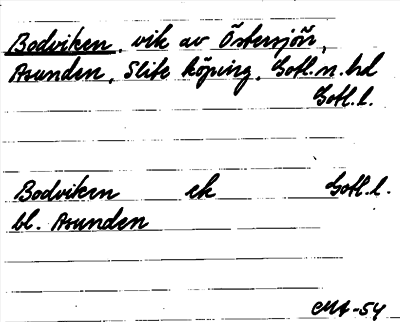 Bodviken, vik av Östersjön,
Asunden, Slite köping, Gotl. n. hd
Gotl. l.
Bodviken ek Gotl. l.
bl. Asunden
EMA-54